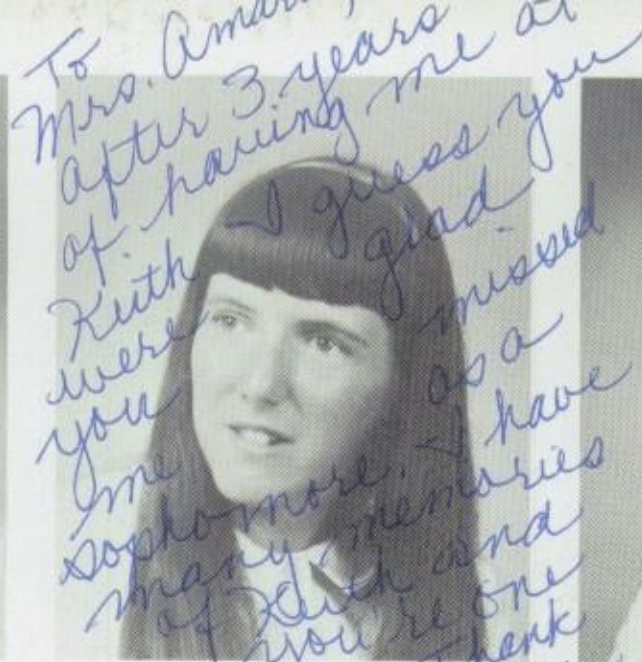 To
Mrs.
after 3 years
of having me at
Keith I guess you
were glad
you missed
me as a
sophomore. I have
many memories
of Keith and
you're one
Thank